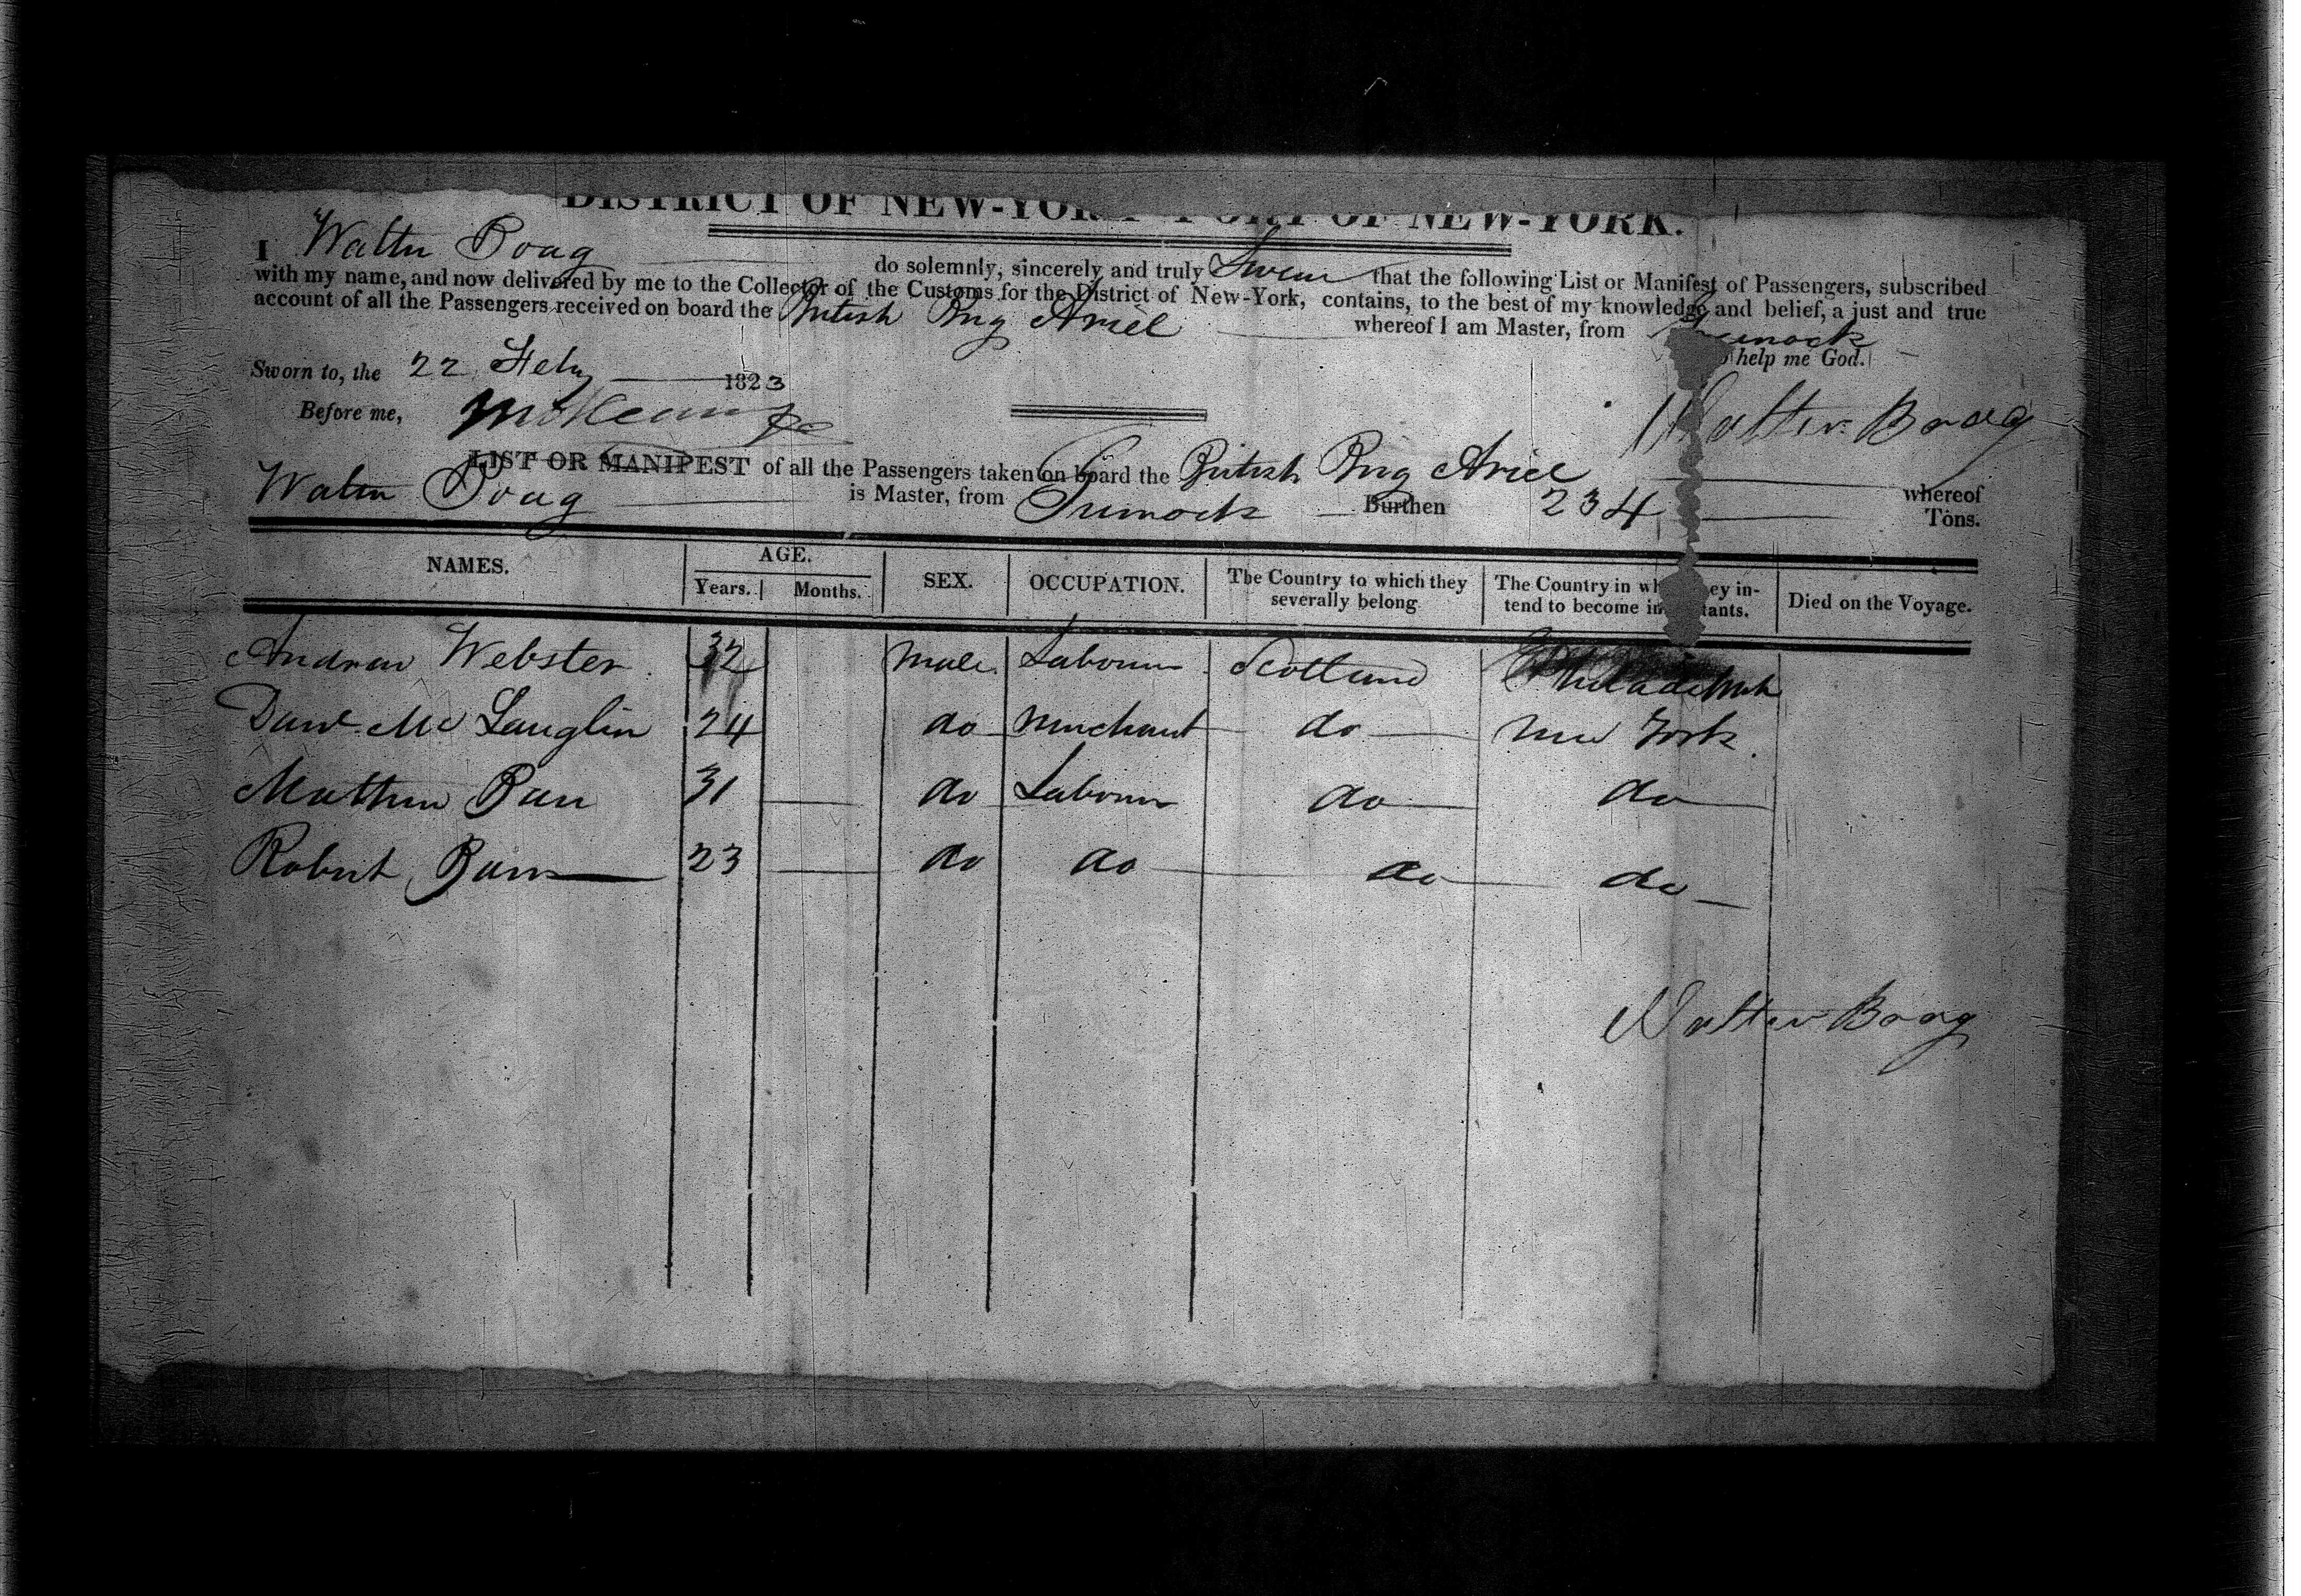 DISTRICT OF NEW-YORK PORT OF NEW-YORK.
I Walter Boag do solemnly, sincerely and truly Swear that the following List or Manifest of Passengers, subscribed
with my name, and now delivered by me to the Collector of the Customs for the District of New-York, contains, to the best of my knowledge and belief, a just and true
account of all the Passengers received on board the British Brig Ariel whereof I am Master, from Greenock
help me God.
Sworn to, the 22 Feby 1823
Before me,
Walter Boag
LIST OR MANIFEST of all the Passengers taken on board the British Brig Ariel whereof
Walter Boag is Master, from Greenock Burthen 234 Tons.
NAMES. AGE. Years. Months. SEX. OCCUPATION. The Country to which they severally belong The Country in which they intend to become inhabitants. Died on the Voyage.
Andrew Webster 32 Male Labourer Scotland Philadelphia
Davd. Mc Lauglin 24 do Merchant do New York
Matthew Barr 31 do Labourer do do
Robert 23 do do do do
Walter Boag